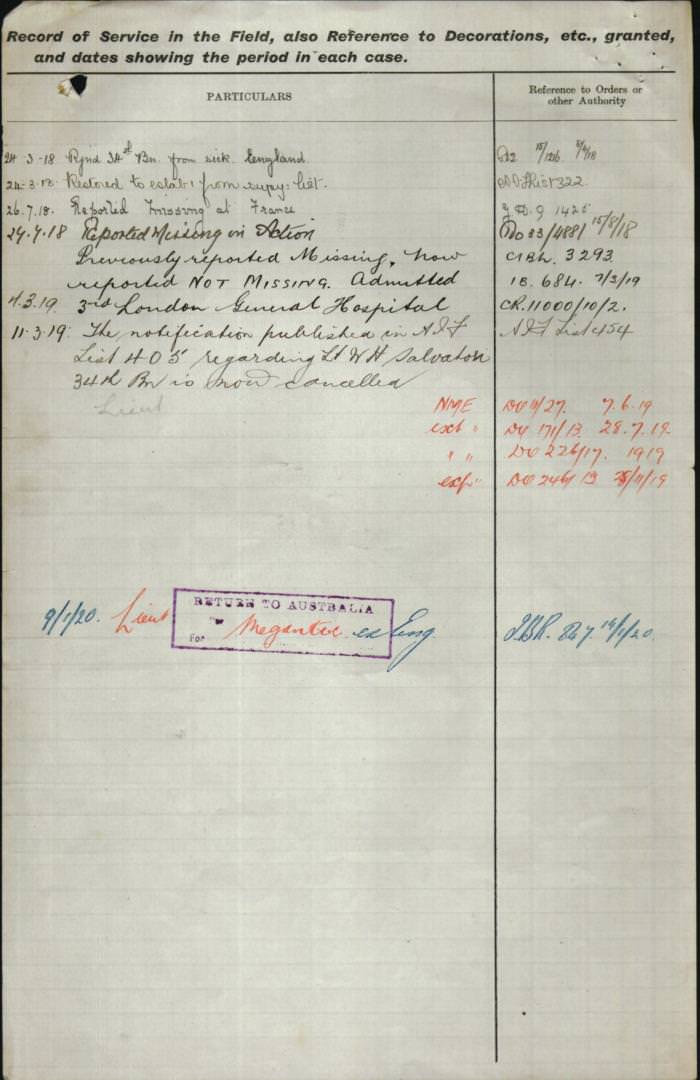 Record of Service in the Field, also Reference to Decorations, etc., granted,
and dates showing the period in each case.
PARTICULARS
Reference to Orders or
other Authority
24-3-18 Rjnd 34th Bn. from sick. England.
24-3-18. Restored to estab: from supy: list. List 322
26.7.18. Reported missing at France 1425
24.7.18 Reported Missing in Action 15/8/18
Previously reported Missing, now C1BL. 3293
reported NOT MISSING. Admitted 1B. 684. 7/3/19
4.3.19. 3rd London General Hospital CR.11000/10/2.
11.3.19. The notification published in A.I.F A.I.F List 454
List 405 regarding Lt W H Salvator
34th Bn is now cancelled
Lieut
NME DO 11/27. 7.6.19
ext " DO 171/13. 28.7.19.
" " DO 226/17. 1919
ext " DO 246/13 25/11/19
9/1/20. Lieut
RETURN TO AUSTRALIA
Per Megantic ex Eng.
16/1/20